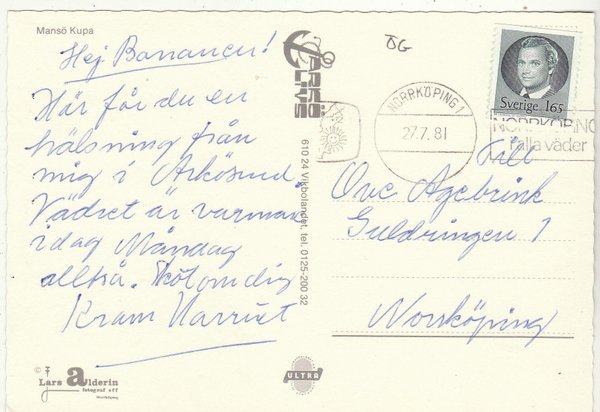 Mansö Kupa
Hej Bananen!
Här får du en
hälsning från
mig i Arkösund.
Vädret är varmare
idag Måndag
alltså. Sköt om dig
Kram Harriet
© Lars alderin
fotograf sff
Norrköping
ARKÖ
LIVS
610 24 Vikbolandet, tel. 0125-200 32
ULTRA
ÖG
NORRKÖPING 1
27.7.81
Sverige 165
NORRKÖPING
i alla väder
Till
Ove Agebrink
Guldringen 1
Norrköping